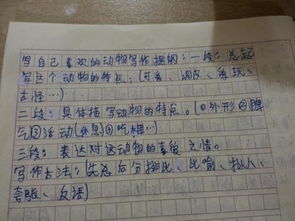 写自己喜欢的动物写作提纲：一段：总起
写这个动物的特点：（可爱、调皮、贪玩、
古怪…）
二段：具体描写动物的特点。（①外形②
③活动（休息）④吃…）
三段：表达对这动物的喜爱之情。
写作方法：（先总后分排比、比喻、拟人、
夸张、反语）